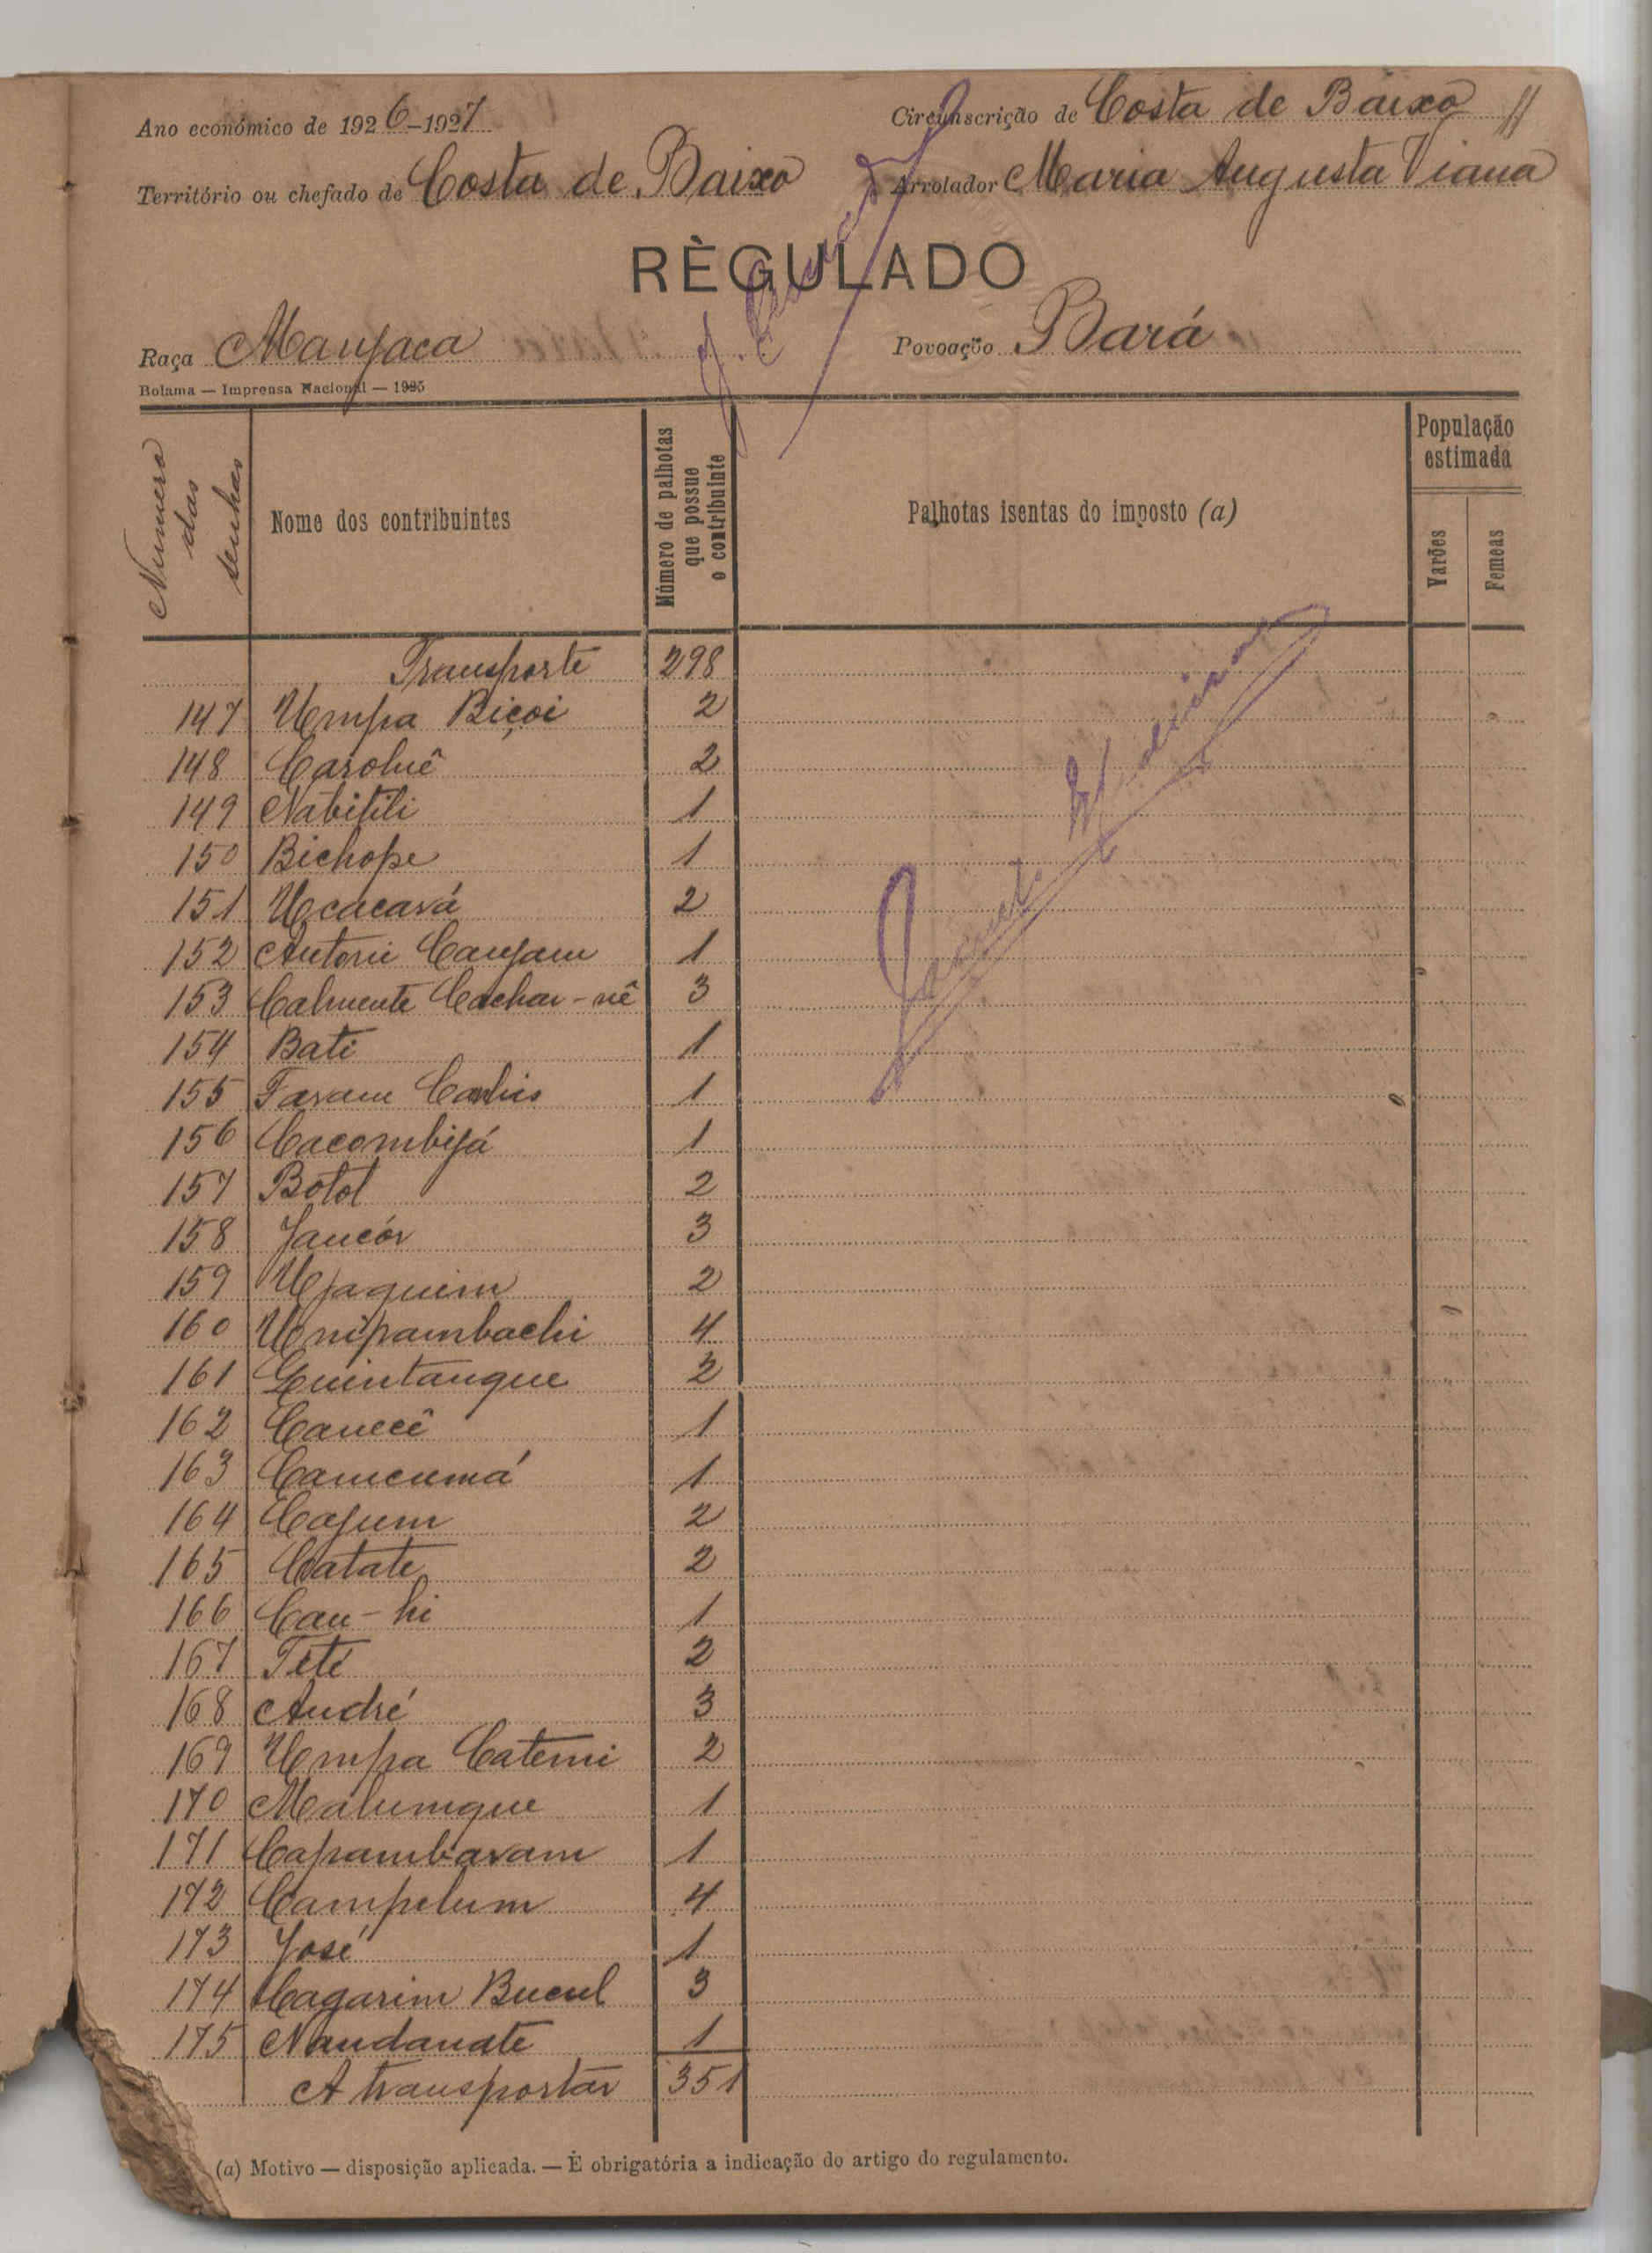 Ano económico de 1926-1927
Circunscrição de Costa de Baixo 11
Território ou chefado de Costa de Baixo
Arrolador Maria Augusta Viana
RÈGULADO
Raça Manjaca
Povoação Bará
Bolama — Imprensa Nacional — 1925
Numero das senhas
Nome dos contribuintes
Número de palhotas que possue o contribuinte
Palhotas isentas do imposto (a)
População estimada
Varões
Femeas
Transporte 298
147 Umpa Biçoi 2
148 Caroluê 2
149 Nabitili 1
150 Bichope 1
151 Ucacará 2
152 Antoni Canjam 1
153 Calmente Cachar-nê 3
154 Bati 1
155 Faram 1
156 Cacombijá 1
157 Botol 2
158 Jancór 3
159 Ujaquim 2
160 Unipambachi 4
161 Quintangue 2
162 Canecê 1
163 Camcumá 1
164 Cajum 2
165 Catate 2
166 Cau-hi 1
167 Teté 2
168 André 3
169 Umpa Catemi 2
170 Malumque 1
171 Capambaram 1
172 Campelum 4
173 José 1
174 Cagarim Bucul 3
175 Nandanate 1
A transportar 351
(a) Motivo — disposição aplicada. — È obrigatória a indicação do artigo do regulamento.